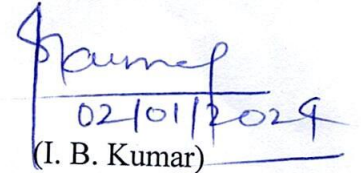 Kumar
02/01/2024
(I. B. Kumar)